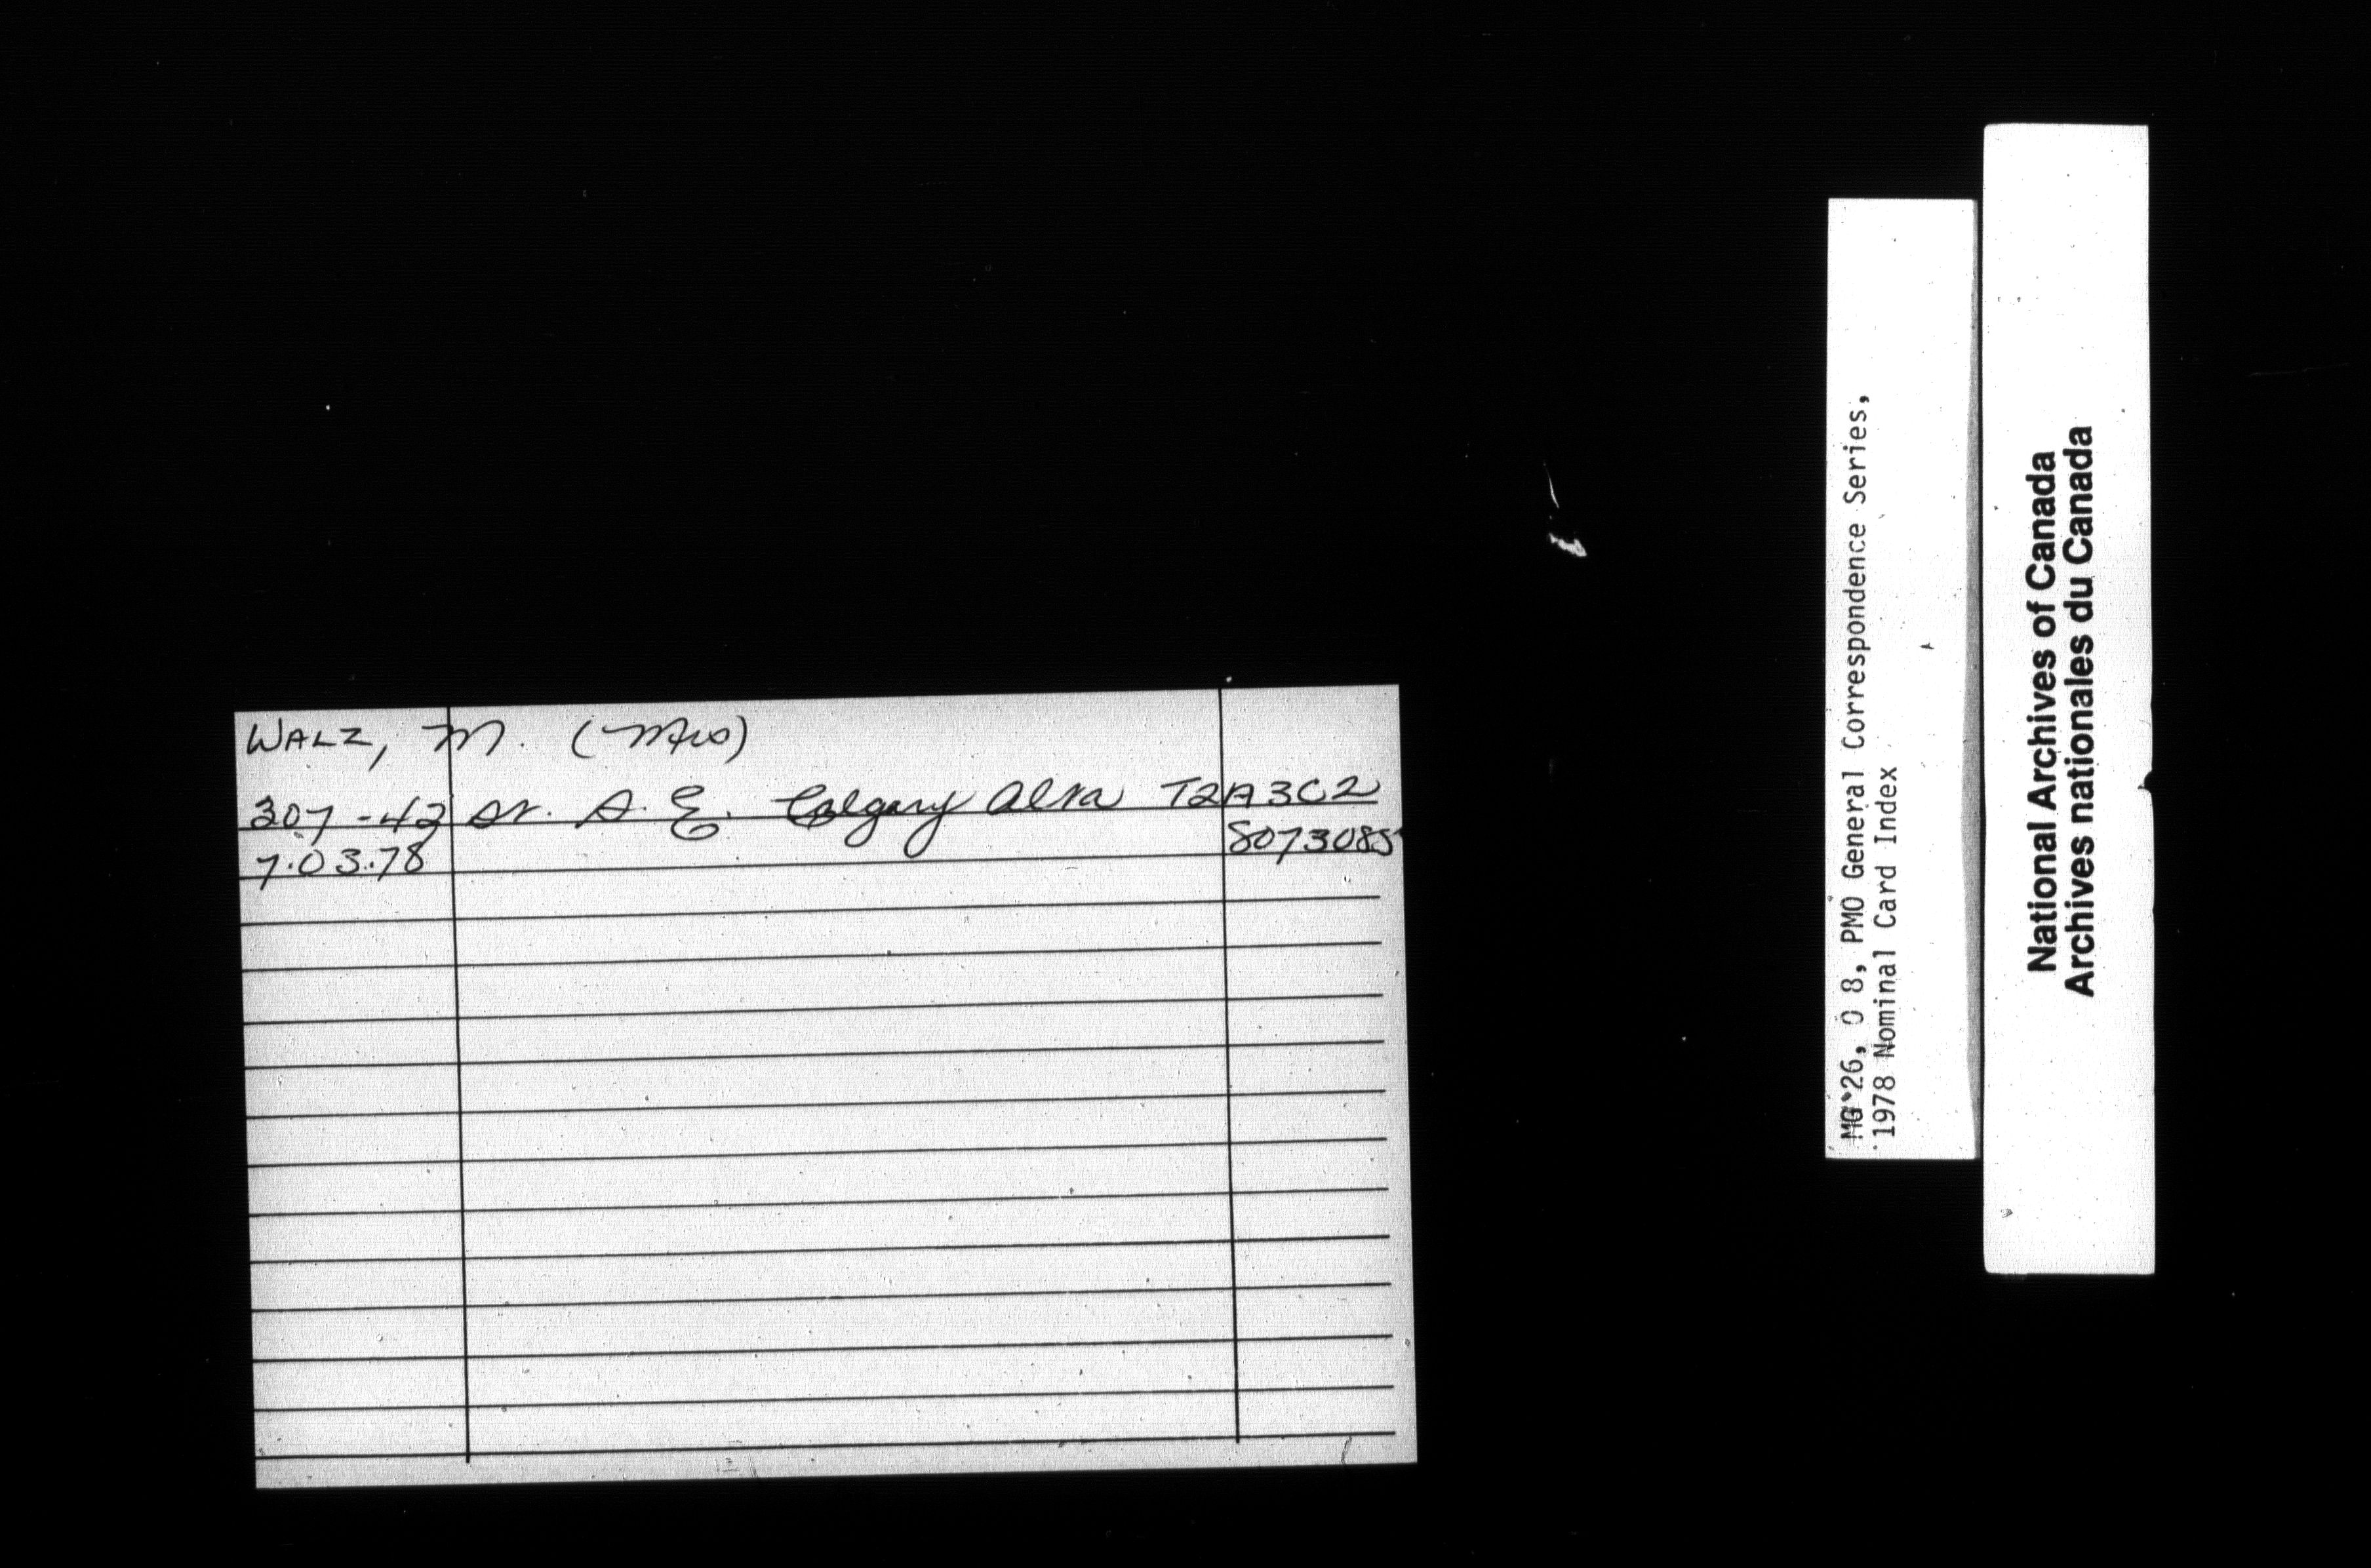 WALZ, M. (Mrs)
307-42 St. S. E. Calgary Alta T2A3C2
7.03.78 8073085
MG 26, O 8, PMO General Correspondence Series,
1978 Nominal Card Index
National Archives of Canada
Archives nationales du Canada